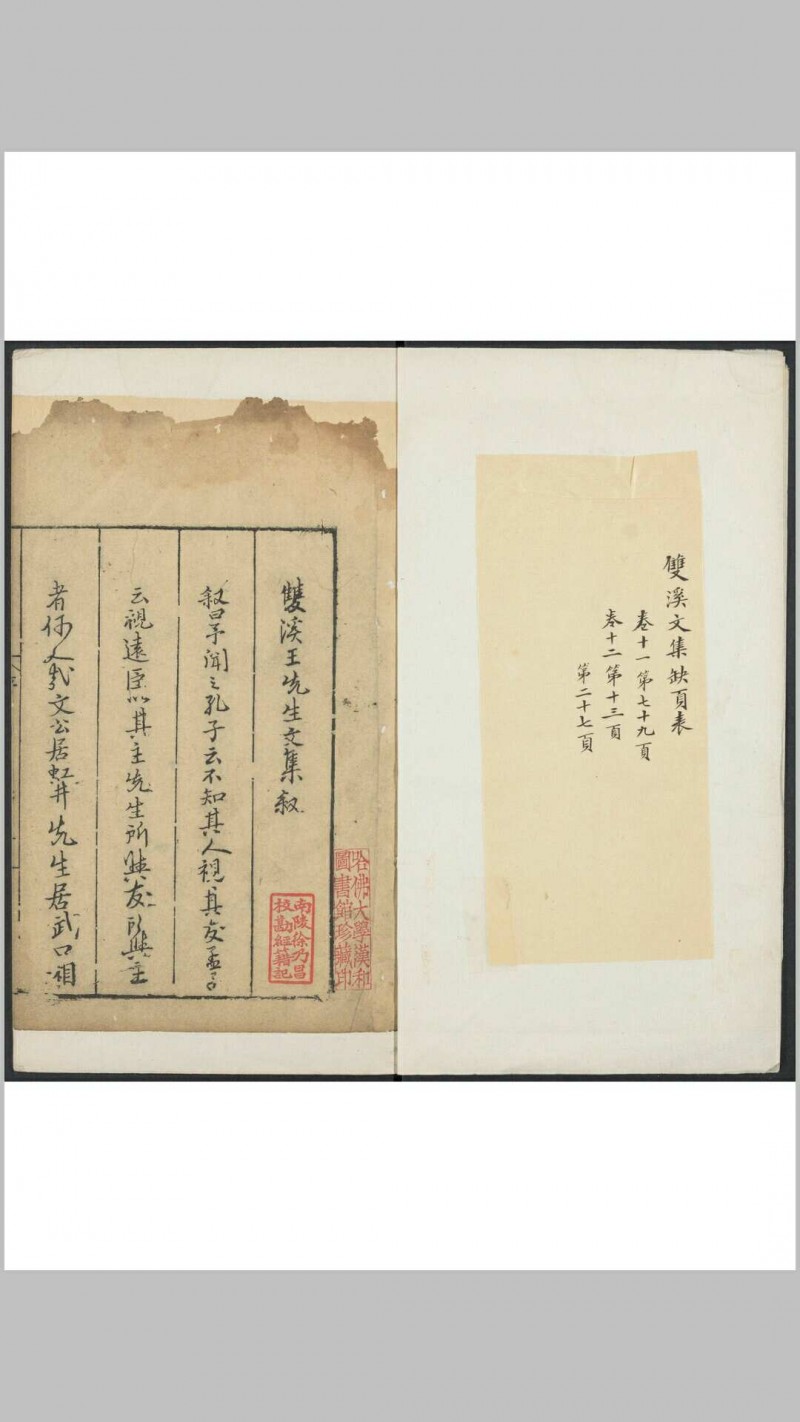 雙溪文集缺頁表
卷十一第七十九頁
卷十二第十三頁
第二十七頁
哈佛大學漢和
圖書館珍藏印
雙溪王先生文集叙
南陵徐乃昌
校勘經籍記
叙曰予聞之孔子云不知其人視其友孟子
云視遠臣以其主先生所與友所與主
者何人哉文公居虹井先生居武口相